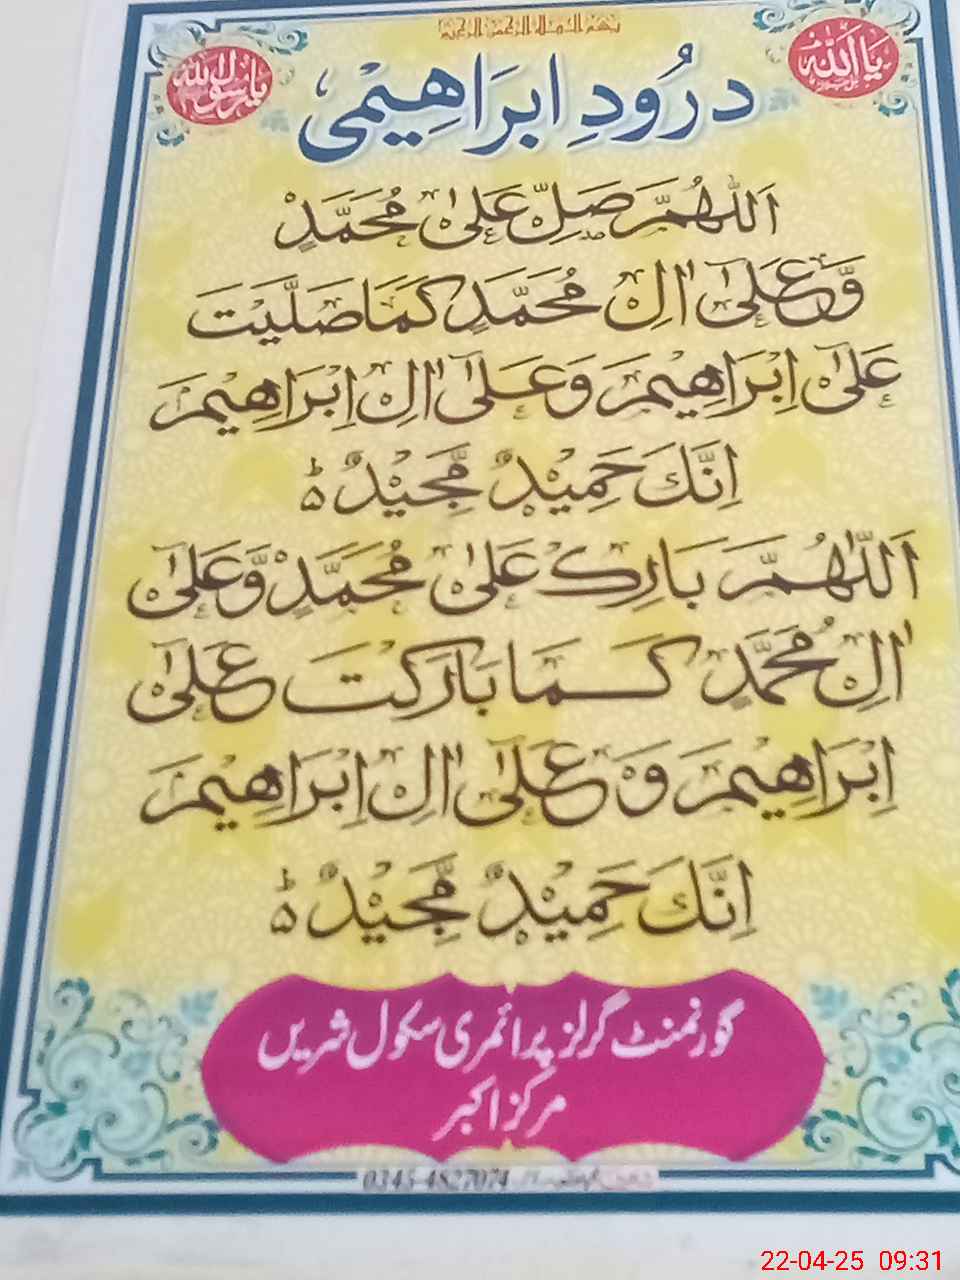 بسم اللہ الرحمن الرحیم
یا اللہ
یا رسول اللہ
درُودِ ابرَاهِیْمی
اَللّٰهُمَّ صَلِّ عَلٰی مُحَمَّدٍ
وَّعَلٰۤی اٰلِ مُحَمَّدٍ كَمَا صَلَّیْتَ
عَلٰۤی اِبْرَاهِیْمَ وَعَلٰۤی اٰلِ اِبْرَاهِیْمَ
اِنَّكَ حَمِیْدٌ مَّجِیْدٌ ؕ
اَللّٰهُمَّ بَارِكْ عَلٰی مُحَمَّدٍ وَّعَلٰۤی
اٰلِ مُحَمَّدٍ كَمَا بَارَكْتَ عَلٰۤی
اِبْرَاهِیْمَ وَعَلٰۤی اٰلِ اِبْرَاهِیْمَ
اِنَّكَ حَمِیْدٌ مَّجِیْدٌ ؕ
گورنمنٹ گرلز پرائمری سکول شریں
مرکز اکبر
0345-4827074
22-04-25 09:31